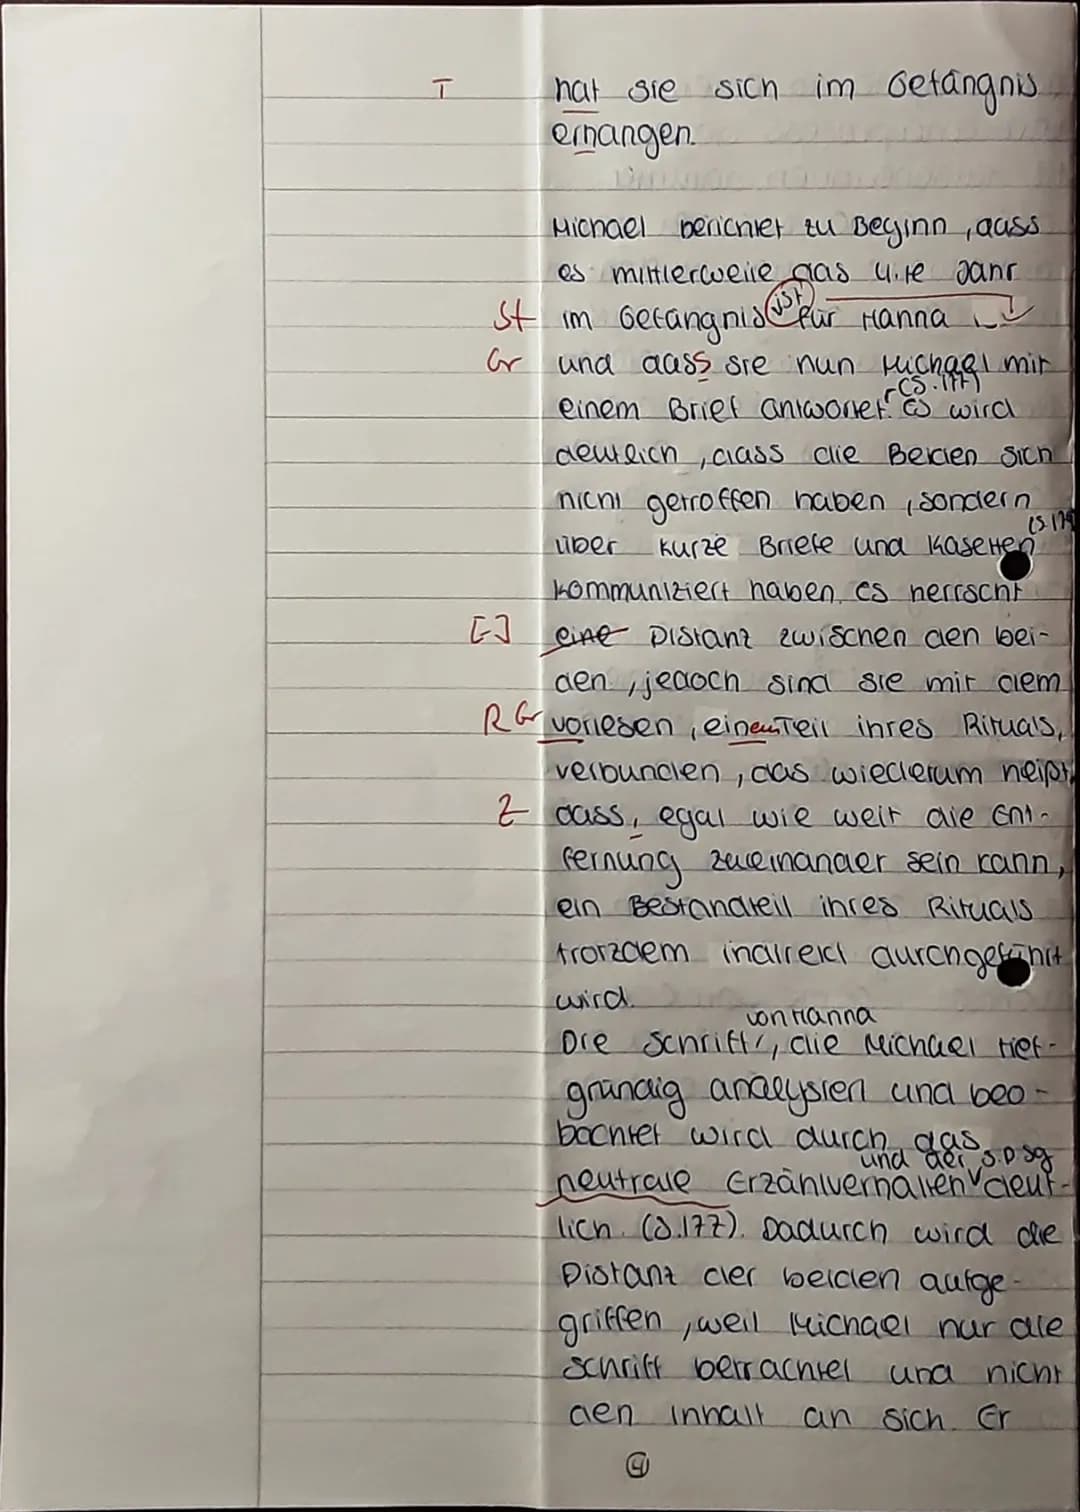 T hat sie sich im Gefängnis
erhangen.
Michael berichtet zu Beginn, dass
es mittlerweile das 4.te Jahr
St im Gefängnis ist für Hanna
Gr und dass sie nun Michael mit
(S.177)
einem Brief antwortet. Es wird
deutlich, dass die Beiden sich
nicht getroffen haben, sondern
(S.179
über kurze Briefe und Kasetten
kommuniziert haben. Es herrscht
[-] eine Distanz zwischen den bei-
den, jedoch sind sie mit dem
R Gr vorlesen, einem Teil ihres Rituals,
verbunden, das wiederum heißt,
Z dass, egal wie weit die Ent-
fernung zueinander sein kann,
ein Bestandteil ihres Rituals
trotzdem indirekt durchgeführt
wird.
von Hanna
Die Schrift, die Michael tief-
gründig analysiert und beo-
bachtet wird durch das
und der 3.P.Sg
neutrale Erzählverhalten deut-
lich. (S.177). Dadurch wird die
Distanz der beiden aufge-
griffen, weil Michael nur die
Schrift betrachtet und nicht
den Inhalt an sich. Er
4